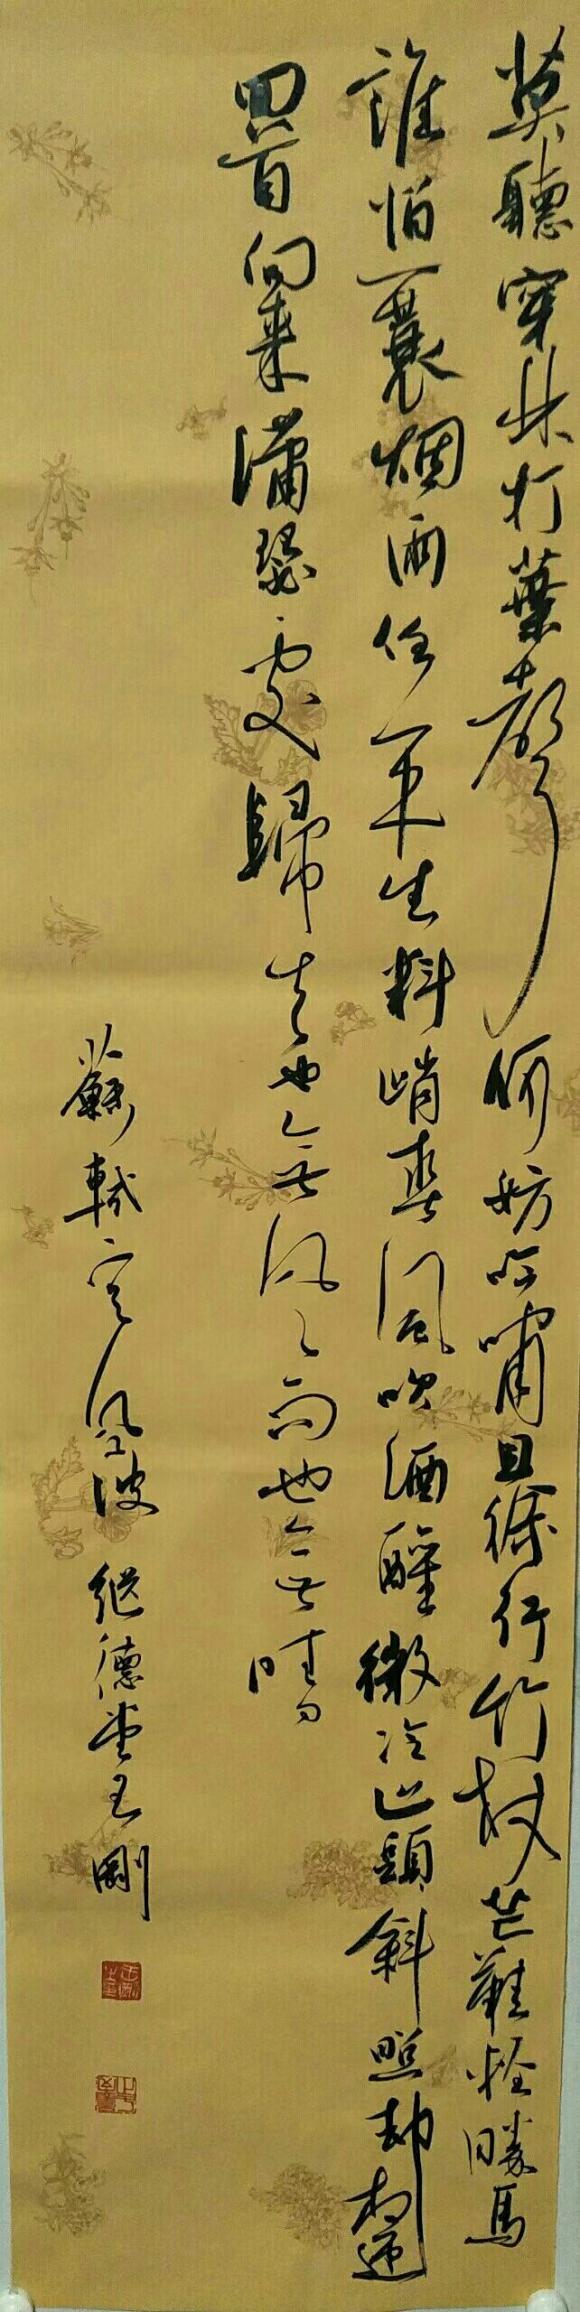 莫聽穿林打葉聲何妨吟嘯且徐行竹杖芒鞋輕勝馬
誰怕一蓑烟雨任平生料峭春風吹酒醒微冷山頭斜照却相迎
回首向來瀟瑟處歸去也無風雨也無晴
蘇軾定風波 继德堂王剛